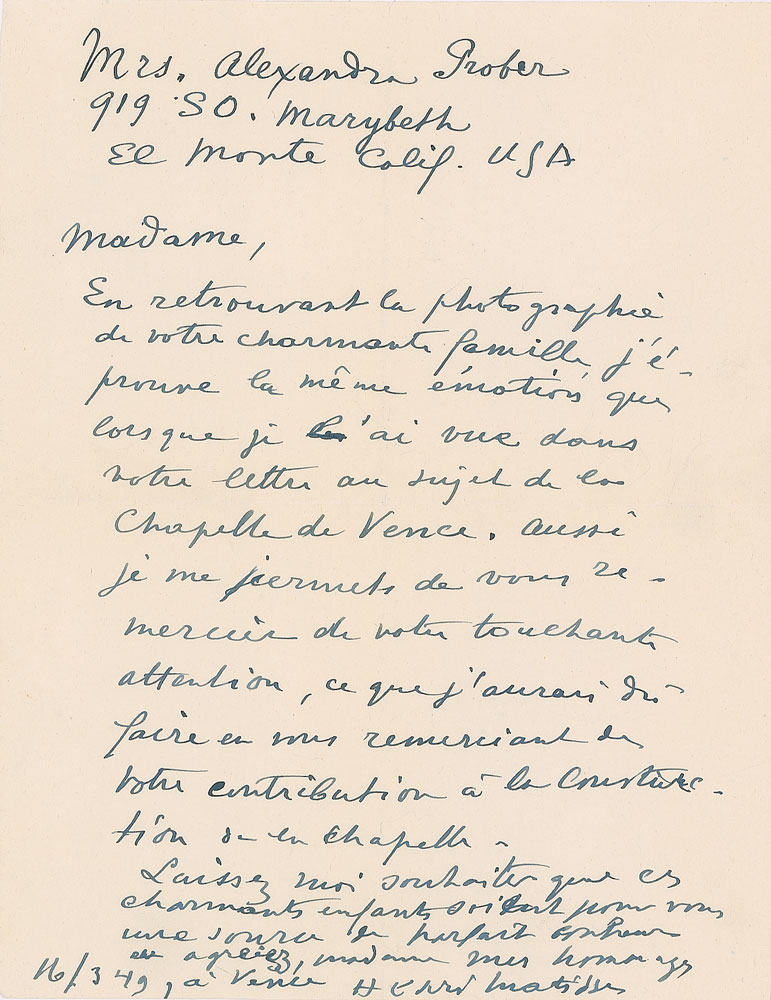 Mrs. Alexandra Prober
919 SO. Marybeth
El Monte Calif. USA
Madame,
En retrouvant la photographie
de votre charmante famille j'é-
prouve la même émotion que
lorsque je l'ai vue dans
votre lettre au sujet de la
Chapelle de Vence. Aussi
je me permets de vous re-
mercier de votre touchante
attention, ce que j'aurais dû
faire en vous remerciant de
votre contribution à la Construc-
tion de la chapelle.
Laissez moi souhaiter que ces
charmants enfants soient pour vous
une source de parfait bonheur
et agréez, madame mes hommages
16/3 49, à Vence Henri Matisse